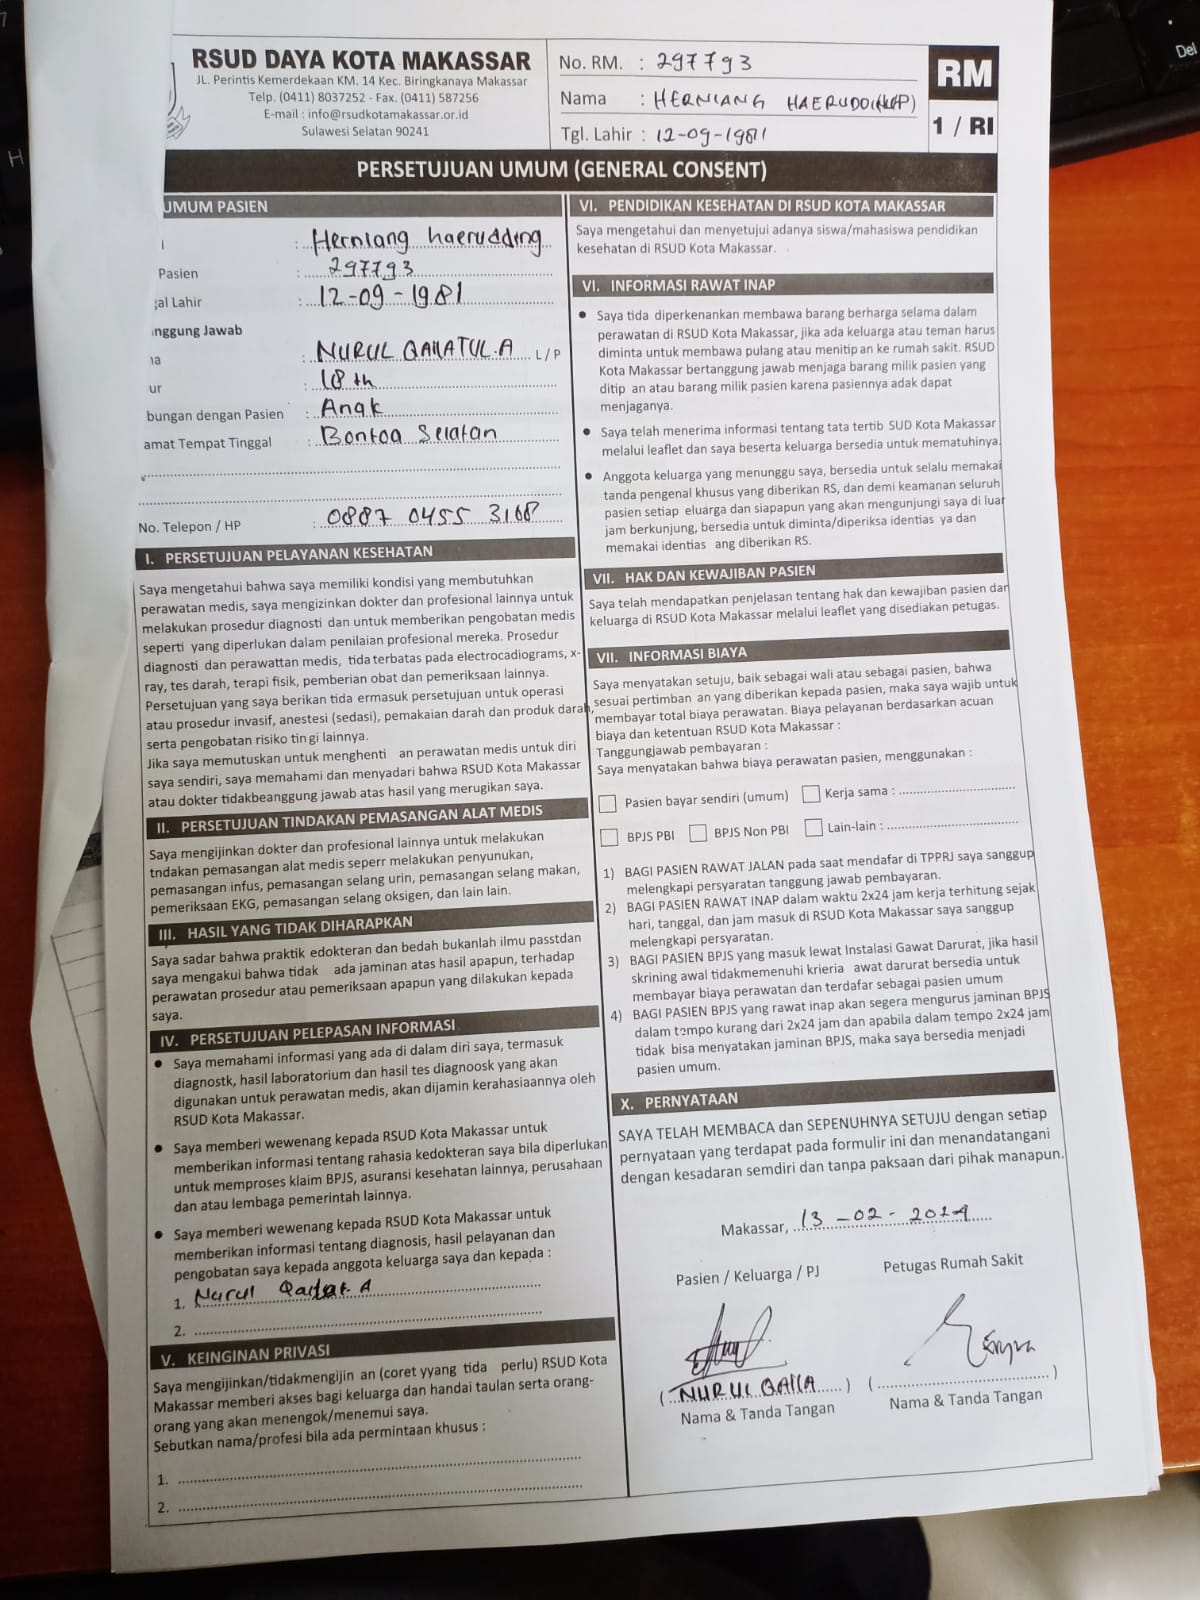 RSUD DAYA KOTA MAKASSAR
JL. Perintis Kemerdekaan KM. 14 Kec. Biringkanaya Makassar
Telp. (0411) 8037252 - Fax. (0411) 587256
E-mail : info@rsudkotamakassar.or.id
Sulawesi Selatan 90241
No. RM. : 297793
Nama : HERNIANG
Tgl. Lahir : 12-09-1981
RM
1 / RI
PERSETUJUAN UMUM (GENERAL CONSENT)
UMUM PASIEN
: Herniang haerudding
Pasien : 297793
gal Lahir : 12-09-1981
nggung Jawab
na : NURUL QAILATUL.A L/P
ur : 18 th
bungan dengan Pasien : Anak
amat Tempat Tinggal : Bontoa Selatan
No. Telepon / HP : 0887 0455 3168
I. PERSETUJUAN PELAYANAN KESEHATAN
Saya mengetahui bahwa saya memiliki kondisi yang membutuhkan
perawatan medis, saya mengizinkan dokter dan profesional lainnya untuk
melakukan prosedur diagnosti dan untuk memberikan pengobatan medis
seperti yang diperlukan dalam penilaian profesional mereka. Prosedur
diagnosti dan perawattan medis, tida terbatas pada electrocadiograms, x-
ray, tes darah, terapi fisik, pemberian obat dan pemeriksaan lainnya.
Persetujuan yang saya berikan tida ermasuk persetujuan untuk operasi
atau prosedur invasif, anestesi (sedasi), pemakaian darah dan produk darah,
serta pengobatan risiko tin gi lainnya.
Jika saya memutuskan untuk menghenti an perawatan medis untuk diri
saya sendiri, saya memahami dan menyadari bahwa RSUD Kota Makassar
atau dokter tidakbeanggung jawab atas hasil yang merugikan saya.
II. PERSETUJUAN TINDAKAN PEMASANGAN ALAT MEDIS
Saya mengijinkan dokter dan profesional lainnya untuk melakukan
tndakan pemasangan alat medis seperr melakukan penyunukan,
pemasangan infus, pemasangan selang urin, pemasangan selang makan,
pemeriksaan EKG, pemasangan selang oksigen, dan lain lain.
III. HASIL YANG TIDAK DIHARAPKAN
Saya sadar bahwa praktik edokteran dan bedah bukanlah ilmu passtdan
saya mengakui bahwa tidak ada jaminan atas hasil apapun, terhadap
perawatan prosedur atau pemeriksaan apapun yang dilakukan kepada
saya.
IV. PERSETUJUAN PELEPASAN INFORMASI
• Saya memahami informasi yang ada di dalam diri saya, termasuk
diagnostk, hasil laboratorium dan hasil tes diagnoosk yang akan
digunakan untuk perawatan medis, akan dijamin kerahasiaannya oleh
RSUD Kota Makassar.
• Saya memberi wewenang kepada RSUD Kota Makassar untuk
memberikan informasi tentang rahasia kedokteran saya bila diperlukan
untuk memproses klaim BPJS, asuransi kesehatan lainnya, perusahaan
dan atau lembaga pemerintah lainnya.
• Saya memberi wewenang kepada RSUD Kota Makassar untuk
memberikan informasi tentang diagnosis, hasil pelayanan dan
pengobatan saya kepada anggota keluarga saya dan kepada :
1. Nurul A
2.
V. KEINGINAN PRIVASI
Saya mengijinkan/tidakmengijin an (coret yyang tida perlu) RSUD Kota
Makassar memberi akses bagi keluarga dan handai taulan serta orang-
orang yang akan menengok/menemui saya.
Sebutkan nama/profesi bila ada permintaan khusus :
1.
2.
VI. PENDIDIKAN KESEHATAN DI RSUD KOTA MAKASSAR
Saya mengetahui dan menyetujui adanya siswa/mahasiswa pendidikan
kesehatan di RSUD Kota Makassar.
VI. INFORMASI RAWAT INAP
• Saya tida diperkenankan membawa barang berharga selama dalam
perawatan di RSUD Kota Makassar, jika ada keluarga atau teman harus
diminta untuk membawa pulang atau menitip an ke rumah sakit. RSUD
Kota Makassar bertanggung jawab menjaga barang milik pasien yang
ditip an atau barang milik pasien karena pasiennya adak dapat
menjaganya.
• Saya telah menerima informasi tentang tata tertib SUD Kota Makassar
melalui leaflet dan saya beserta keluarga bersedia untuk mematuhinya
• Anggota keluarga yang menunggu saya, bersedia untuk selalu memakai
tanda pengenal khusus yang diberikan RS, dan demi keamanan seluruh
pasien setiap eluarga dan siapapun yang akan mengunjungi saya di luar
jam berkunjung, bersedia untuk diminta/diperiksa identias ya dan
memakai identias ang diberikan RS.
VII. HAK DAN KEWAJIBAN PASIEN
Saya telah mendapatkan penjelasan tentang hak dan kewajiban pasien dan
keluarga di RSUD Kota Makassar melalui leaflet yang disediakan petugas.
VII. INFORMASI BIAYA
Saya menyatakan setuju, baik sebagai wali atau sebagai pasien, bahwa
sesuai pertimban an yang diberikan kepada pasien, maka saya wajib untuk
membayar total biaya perawatan. Biaya pelayanan berdasarkan acuan
biaya dan ketentuan RSUD Kota Makassar :
Tanggungjawab pembayaran :
Saya menyatakan bahwa biaya perawatan pasien, menggunakan :
Pasien bayar sendiri (umum) Kerja sama :
BPJS PBI BPJS Non PBI Lain-lain :
1) BAGI PASIEN RAWAT JALAN pada saat mendafar di TPPRJ saya sanggup
melengkapi persyaratan tanggung jawab pembayaran.
2) BAGI PASIEN RAWAT INAP dalam waktu 2x24 jam kerja terhitung sejak
hari, tanggal, dan jam masuk di RSUD Kota Makassar saya sanggup
melengkapi persyaratan.
3) BAGI PASIEN BPJS yang masuk lewat Instalasi Gawat Darurat, jika hasil
skrining awal tidakmemenuhi krieria awat darurat bersedia untuk
membayar biaya perawatan dan terdafar sebagai pasien umum
4) BAGI PASIEN BPJS yang rawat inap akan segera mengurus jaminan BPJS
dalam tempo kurang dari 2x24 jam dan apabila dalam tempo 2x24 jam
tidak bisa menyatakan jaminan BPJS, maka saya bersedia menjadi
pasien umum.
X. PERNYATAAN
SAYA TELAH MEMBACA dan SEPENUHNYA SETUJU dengan setiap
pernyataan yang terdapat pada formulir ini dan menandatangani
dengan kesadaran semdiri dan tanpa paksaan dari pihak manapun.
Makassar, 13-02-2024
Pasien / Keluarga / PJ Petugas Rumah Sakit
(NURUL QAILA) ( )
Nama & Tanda Tangan Nama & Tanda Tangan
Del
H